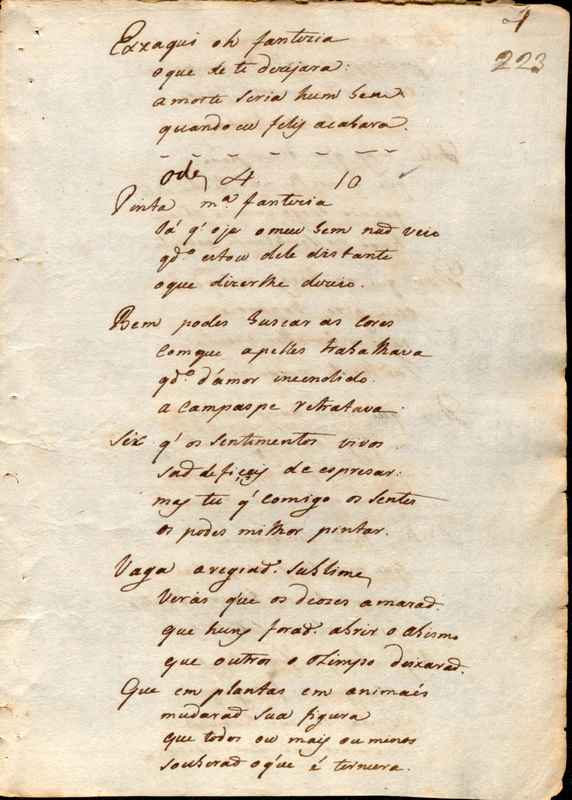 4
223
Exzaqui oh fantezia
o que de ti dezejara:
a morte seria hum bem
quando eu felis acabara.
ode 4 10
Pinta mª fantezia
Já q' oje o meu bem naõ veio
qdº estou dele distante
o que dizerlhe dezeio.
Bem podes buscar as cores
com que apelles trabalhava
qdº d'amor incendido
a campaspe retratava.
Sei q' os sentimentos vivos
saõ deficeis de espresar:
mas tu q' comigo os sentes
os podes milhor pintar.
Vaga a regiaõ. sublime,
verás que os deozes amaraõ.
que huns foraõ. abrir o abismo
que outros o olimpo deixaraõ.
Que em plantas em animaes
mudaraõ sua figura
que todos ou mais ou menos
souberaõ o q'ue é ternura.